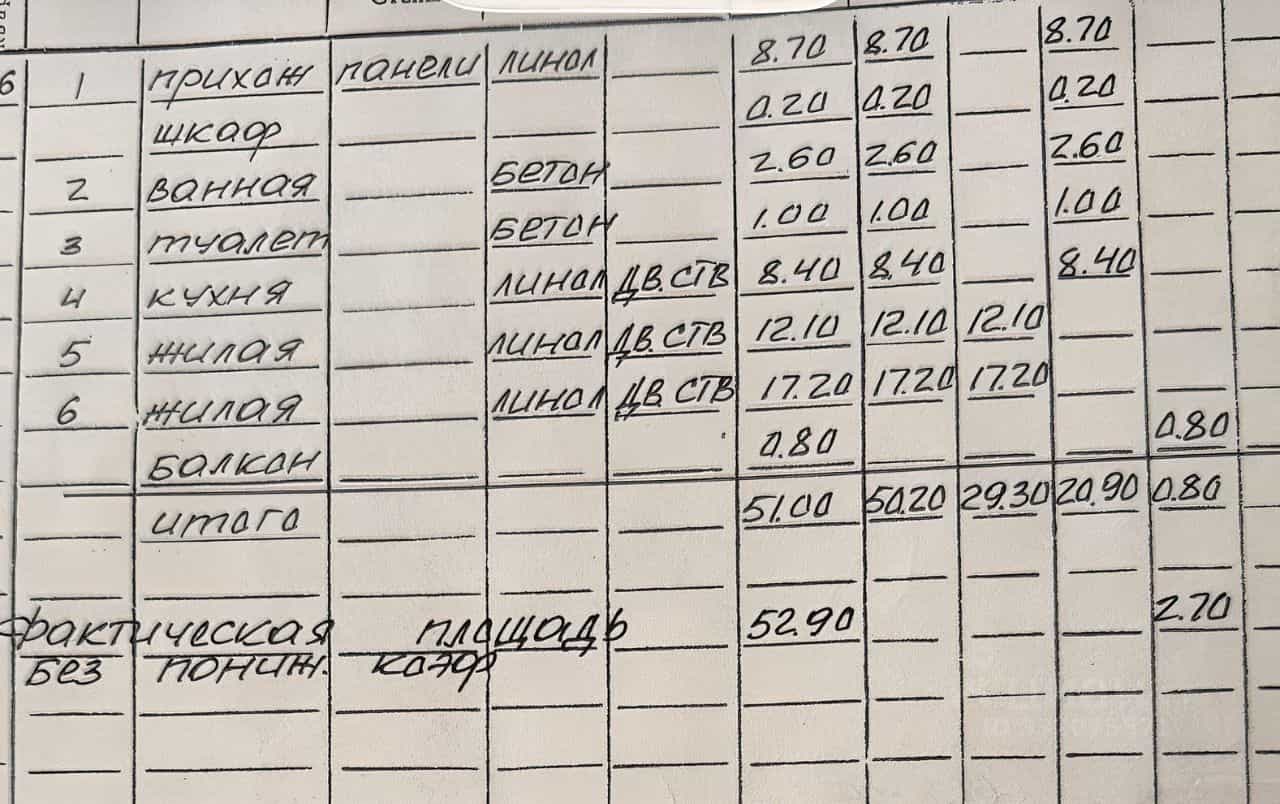 6 1 прихож панели линол 8.70 8.70 8.70
шкаф 0.20 0.20 0.20
2 ванная бетон 2.60 2.60 2.60
3 туалет бетон 1.00 1.00 1.00
4 кухня линол дв. ств 8.40 8.40 8.40
5 жилая линол дв. ств 12.10 12.10 12.10
6 жилая линол дв. ств 17.20 17.20 17.20
балкон 0.80 0.80
итого 51.00 50.20 29.30 20.90 0.80
фактическая площадь 52.90 2.70
без пониж. коэф